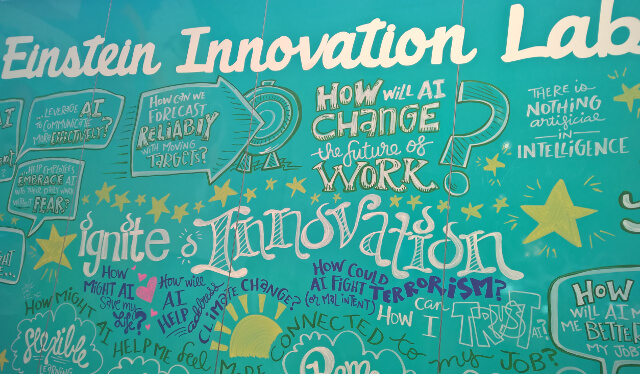 Einstein Innovation Lab
...LEVERAGE AI
TO COMMUNICATE
MORE EFFECTIVELY?
...HELP EMPLOYEES
EMBRACE AI
INTO THEIR DAILY WORK
WITHOUT
FEAR?
HOW CAN WE
FORCAST
RELIABLY
WITH MOVING
TARGETS?
HOW WILL AI
CHANGE
the future of
WORK?
THERE is
NOTHING
artificial
IN
INTELLIGENCE
ignite is Innovation
HOW
MIGHT AI
SAVE my
Life?
How will
AI
HELP address
CLIMATE CHANGE?
HOW COULD
AI FIGHT TERRORISM?
(or MAL INTENT)
HOW Can
I TRUST AI?
HOW MIGHT AI HELP ME feel
MORE CONNECTED to my JOB?
flexible
LEARNING
HOW
WILL AI M
ME BETTER
MY JOB